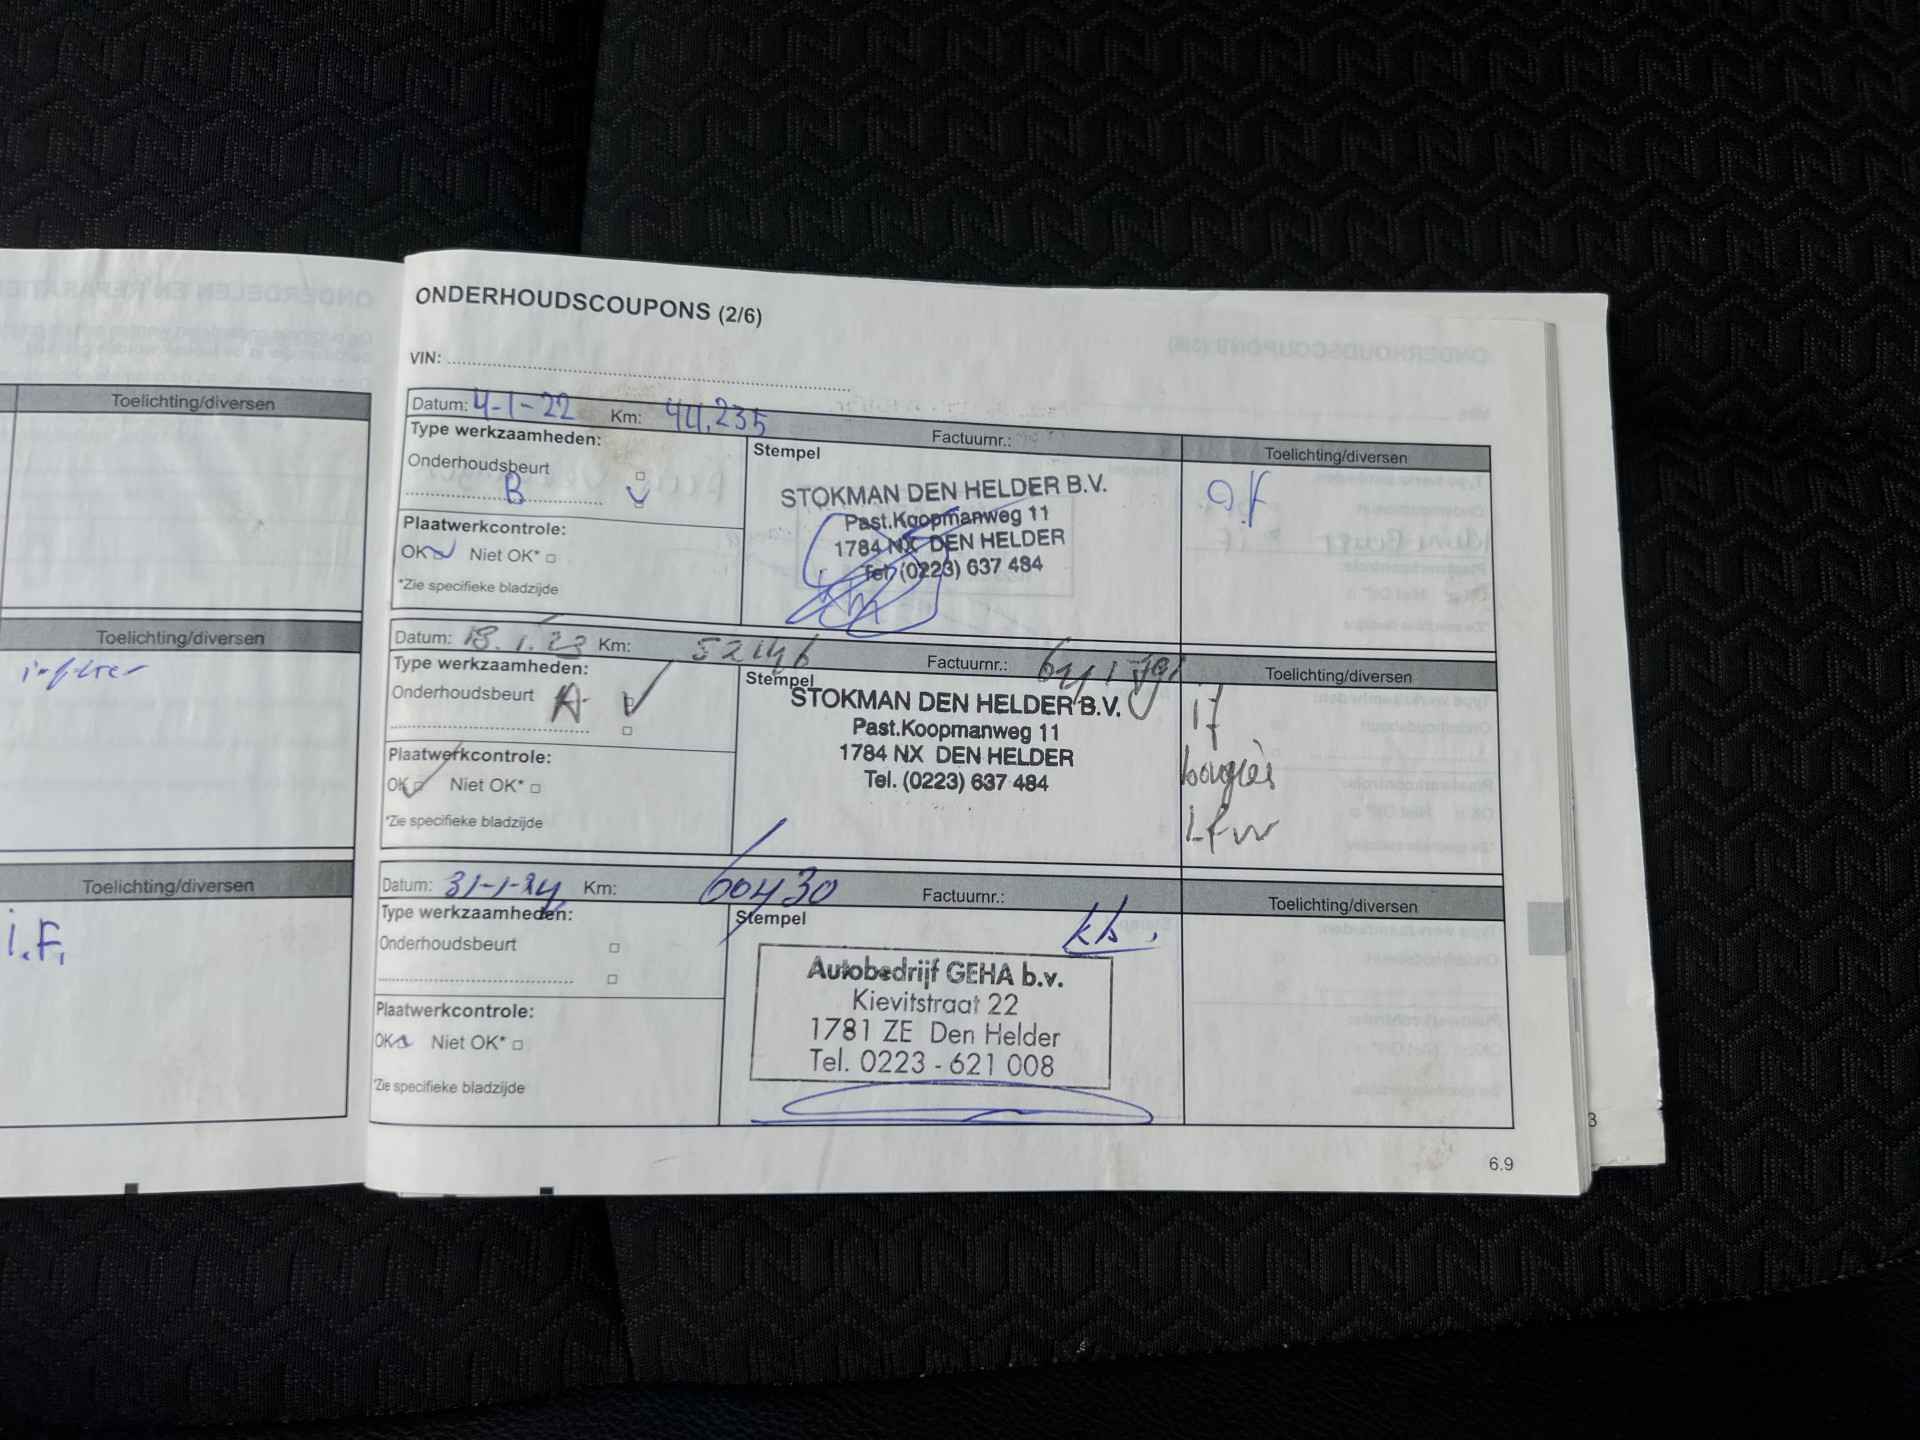 Toelichting/diversen
Toelichting/diversen
Toelichting/diversen
i.F.
ONDERHOUDSCOUPONS (2/6)
VIN:
Datum: 4-1-22 Km: 44.235 Factuurnr.: Toelichting/diversen
Type werkzaamheden:
Stempel
Onderhoudsbeurt
B
Plaatwerkcontrole:
OK Niet OK*
*Zie specifieke bladzijde
STOKMAN DEN HELDER B.V.
Past.Koopmanweg 11
1784 NX DEN HELDER
Tel. (0223) 637 484
Datum: 18.1.23 Km: 52146 Factuurnr.: Toelichting/diversen
Type werkzaamheden:
Stempel
Onderhoudsbeurt A
Plaatwerkcontrole:
OK Niet OK*
*Zie specifieke bladzijde
STOKMAN DEN HELDER B.V.
Past.Koopmanweg 11
1784 NX DEN HELDER
Tel. (0223) 637 484
if
bougies
Datum: 31-1-24 Km: 60430 Factuurnr.: Toelichting/diversen
Type werkzaamheden:
Stempel
Onderhoudsbeurt
Plaatwerkcontrole:
OK Niet OK*
*Zie specifieke bladzijde
Autobedrijf GEHA b.v.
Kievitstraat 22
1781 ZE Den Helder
Tel. 0223 - 621 008
6.9
3